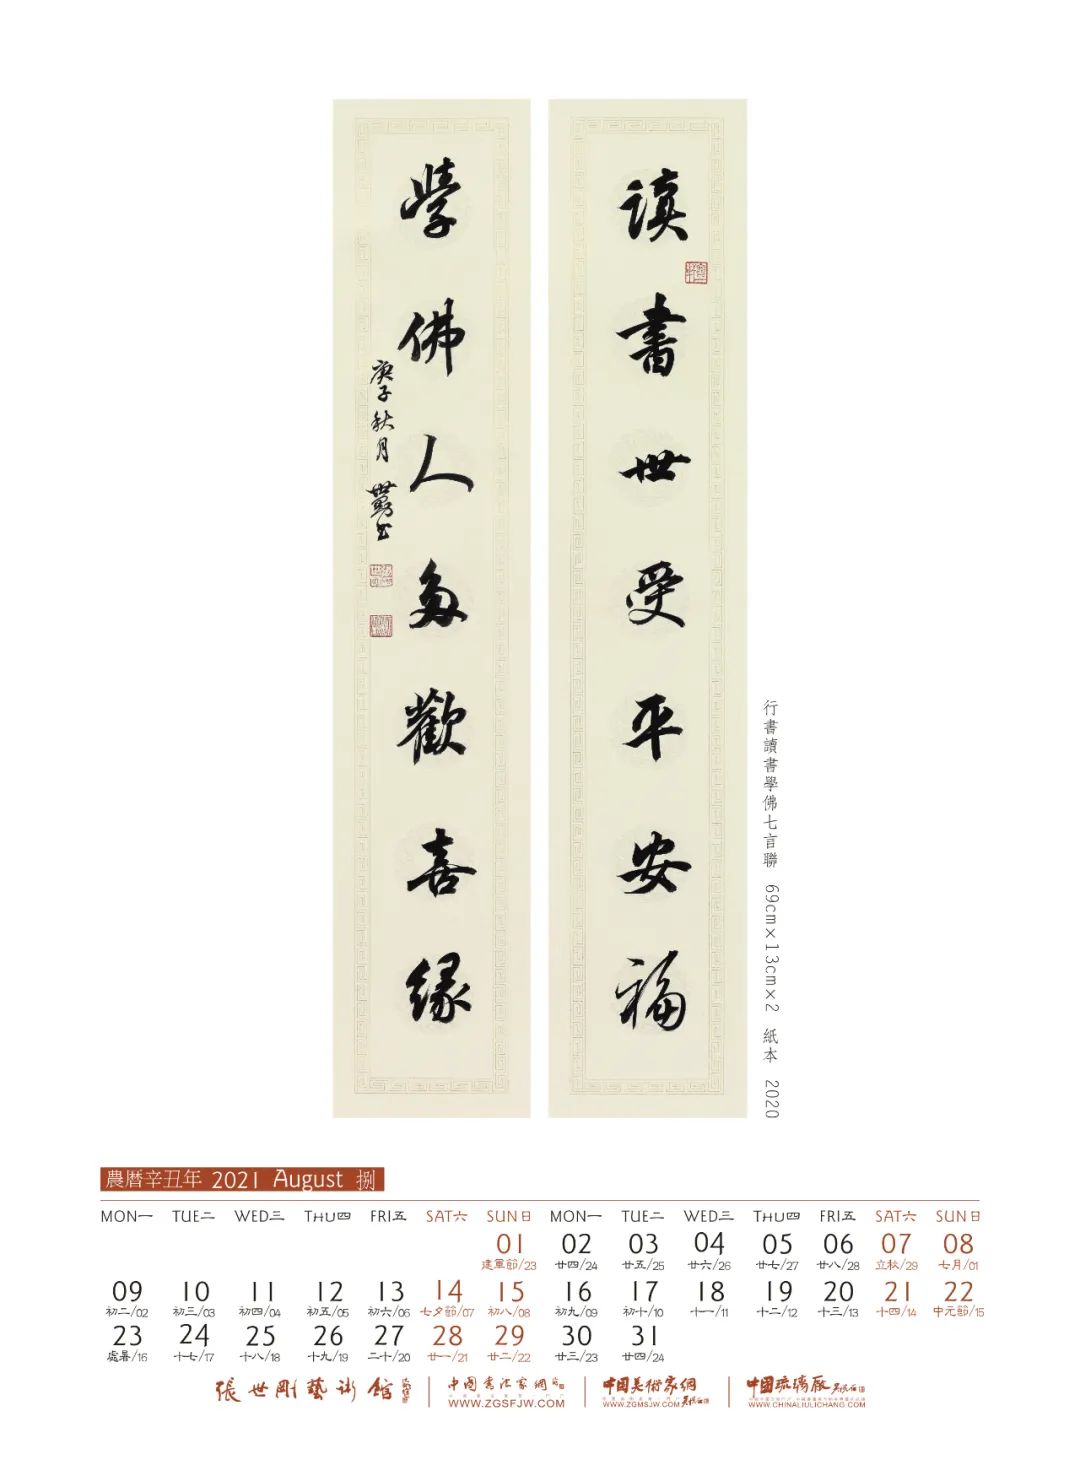 读書世受平安福
學佛人多歡喜緣
庚子秋月 世剛书
行書讀書學佛七言聯 69cm×13cm×2 紙本 2020
農曆辛丑年 2021 August 捌
MON一 TUE二 WED三 THU四 FRI五 SAT六 SUN日 MON一 TUE二 WED三 THU四 FRI五 SAT六 SUN日
01 02 03 04 05 06 07 08
建軍節/23 廿四/24 廿五/25 廿六/26 廿七/27 廿八/28 立秋/29 七月/01
09 10 11 12 13 14 15 16 17 18 19 20 21 22
初二/02 初三/03 初四/04 初五/05 初六/06 七夕節/07 初八/08 初九/09 初十/10 十一/11 十二/12 十三/13 十四/14 中元節/15
23 24 25 26 27 28 29 30 31
處暑/16 十七/17 十八/18 十九/19 二十/20 廿一/21 廿二/22 廿三/23 廿四/24
張世剛藝術館
中國書法家網
WWW.ZGSFJW.COM
中国美術家網
WWW.ZGMSJW.COM
中国琉璃廠
WWW.CHINALIULICHANG.COM